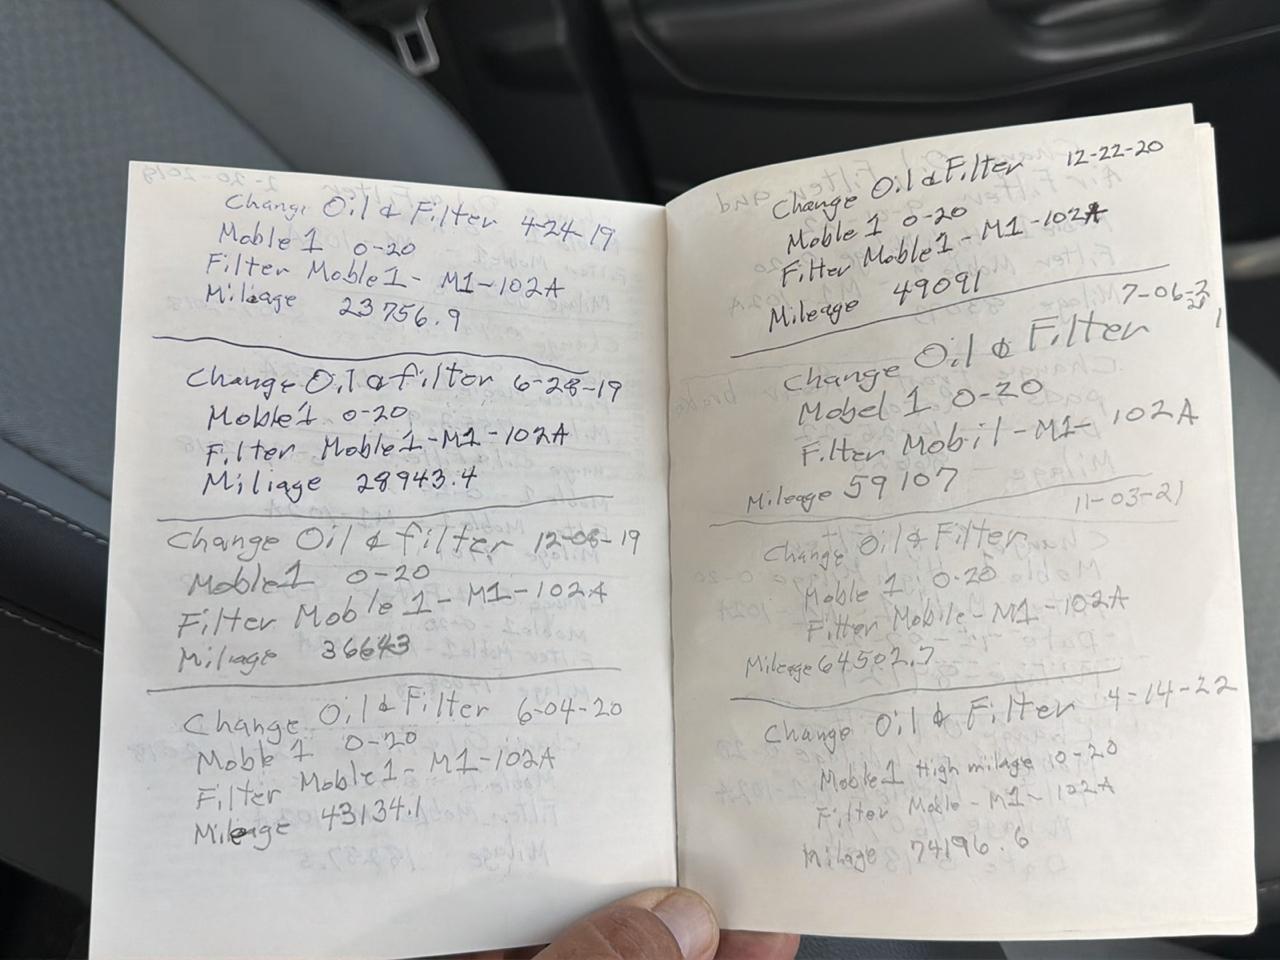 Change Oil & Filter 4-24-19
Moble 1 0-20
Filter Moble 1 - M1-102A
Milage 23756.9
Change Oil & filter 6-28-19
Moble 1 0-20
Filter Moble 1 - M1-102A
Miliage 28943.4
Change Oil & filter 12-08-19
Moble 1 0-20
Filter Moble 1 - M1-102A
Miliage 36643
Change Oil & Filter 6-04-20
Moble 1 0-20
Filter Moble 1 - M1-102A
Mileage 43134.1
Change Oil & Filter 12-22-20
Moble 1 0-20
Filter Moble 1 - M1-102A
Mileage 49091
7-06-21
Change Oil & Filter
Mobel 1 0-20
Filter Mobil - M1-102A
Mileage 59107
11-03-21
Change Oil & Filter
Moble 1 0-20
Filter Mobile - M1-102A
Mileage 64502.7
Change Oil & Filter 4-14-22
Moble 1 High milage 0-20
Filter Moble - M1-102A
Milage 74196.6